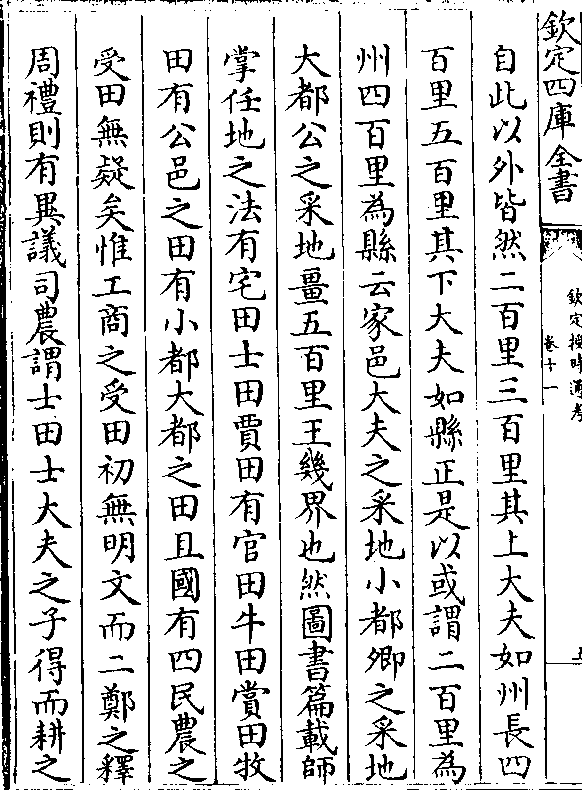 欽定四庫全書
欽定授時通考
卷十一
自此以外皆然二百里三百里其上大夫如州長四
百里五百里其下大夫如縣正是以或謂二百里為
州四百里為縣云家邑大夫之采地小都卿之采地
大都公之采地畺五百里王畿界也然圖書篇載師
掌任地之法有宅田士田賈田有官田牛田賞田牧
田有公邑之田有小都大都之田且國有四民農之
受田無疑矣惟工商之受田初無明文而二鄭之釋
周禮則有異議司農謂士田士大夫之子得而耕之